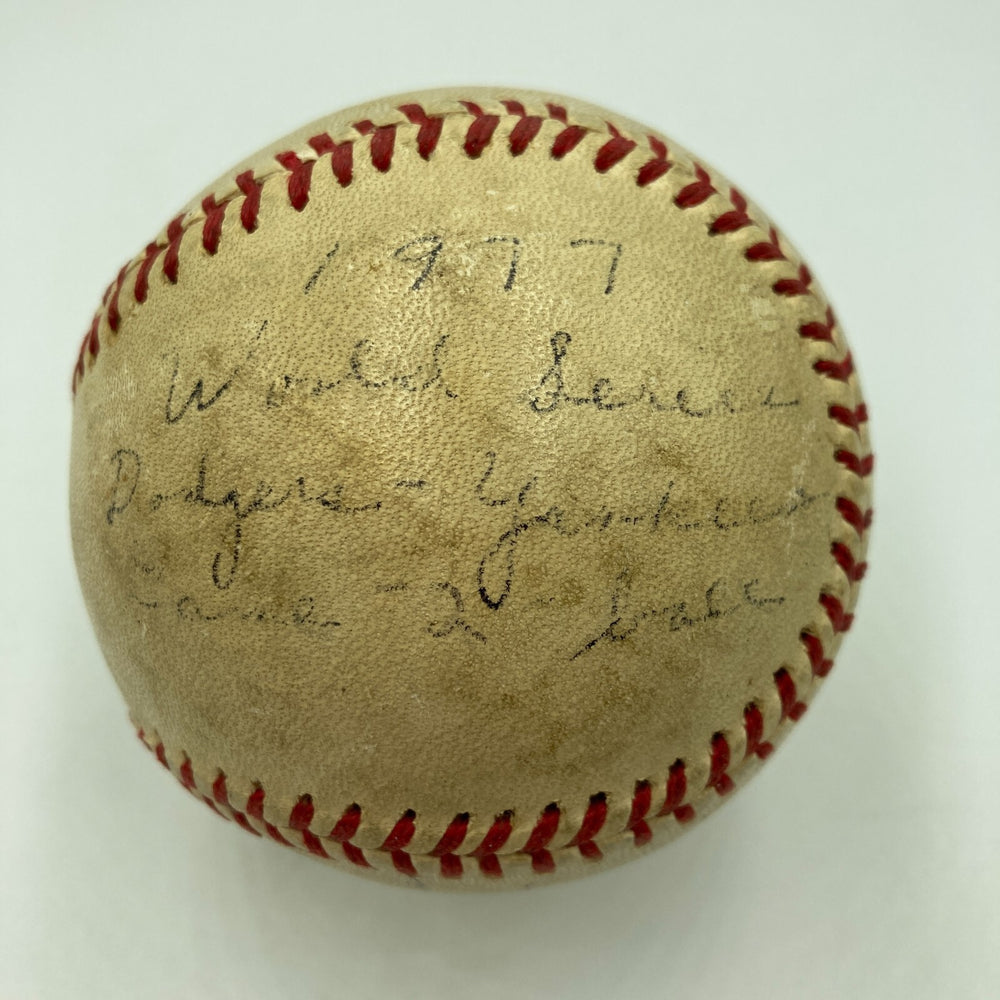 1977
World Series
Dodgers - Yankees
Game - 2 - ball